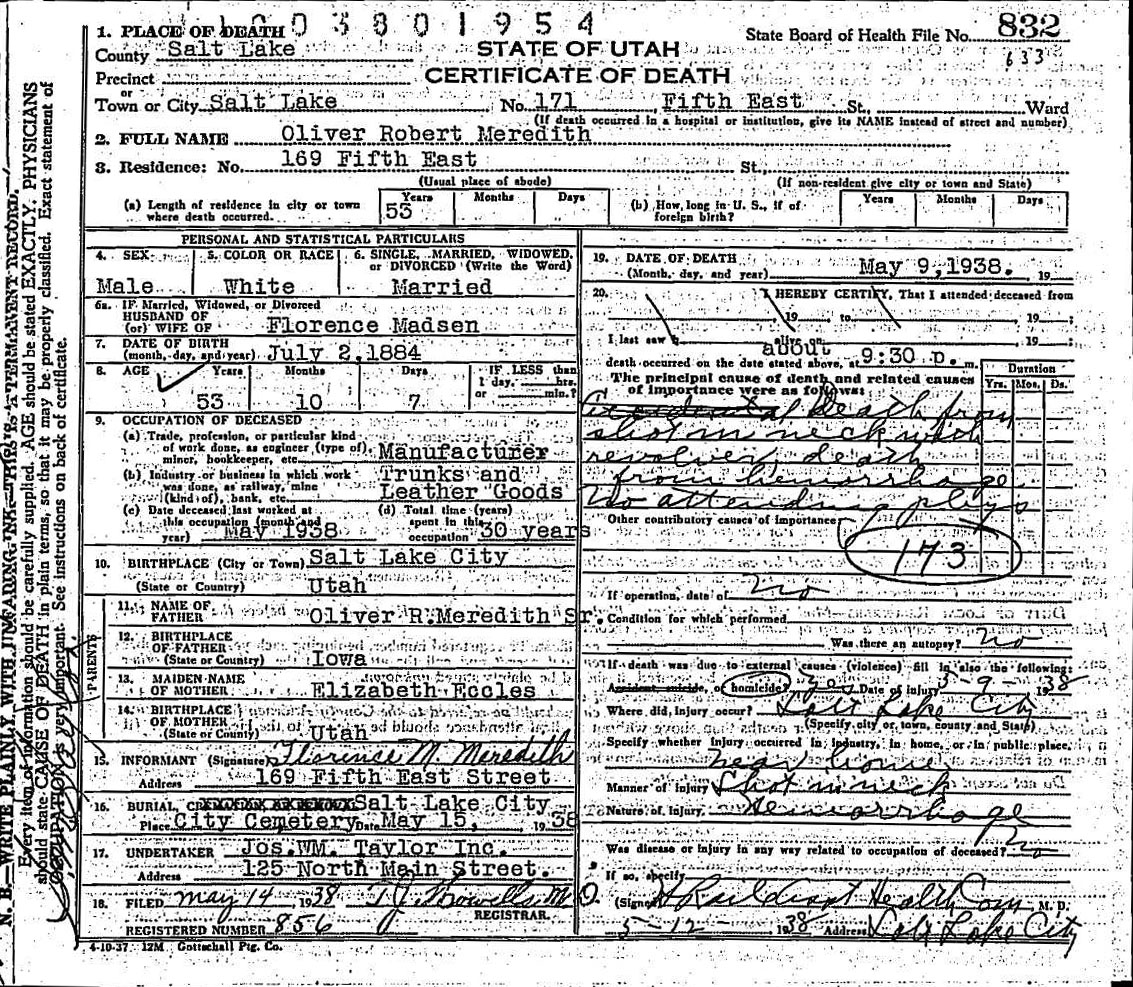 1003801954
1. PLACE OF DEATH
County Salt Lake
STATE OF UTAH
State Board of Health File No. 832
633
Precinct
CERTIFICATE OF DEATH
or
Town or City Salt Lake No. 171 Fifth East St., Ward
(If death occurred in a hospital or institution, give its NAME instead of street and number)
2. FULL NAME Oliver Robert Meredith
3. Residence: No. 169 Fifth East St.,
(Usual place of abode) (If non-resident give city or town and State)
(a) Length of residence in city or town where death occurred. Years 53 Months Days
(b) How, long in U. S., if of foreign birth? Years Months Days
PERSONAL AND STATISTICAL PARTICULARS
4. SEX 5. COLOR OR RACE 6. SINGLE, MARRIED, WIDOWED,
or DIVORCED (Write the Word)
Male White Married
6a. IF Married, Widowed, or Divorced
HUSBAND OF
(or) WIFE OF Florence Madsen
7. DATE OF BIRTH
(month, day, and year) July 2, 1884
8. AGE Years Months Days IF LESS than
1 day, hrs.
or min.?
53 10 7
9. OCCUPATION OF DECEASED
(a) Trade, profession, or particular kind
of work done, as engineer (type of),
miner, bookkeeper, etc. Manufacturer
(b) Industry or business in which work Trunks and
was done, as railway, mine
(kind of), bank, etc. Leather Goods
(c) Date deceased last worked at (d) Total time (years)
this occupation (month and spent in this
year) May 1938 occupation 30 years
10. BIRTHPLACE (City or Town) Salt Lake City
(State or Country) Utah
PARENTS
11. NAME OF
FATHER Oliver R. Meredith Sr.
12. BIRTHPLACE
OF FATHER
(State or Country) Iowa
13. MAIDEN NAME
OF MOTHER Elizabeth Eccles
14. BIRTHPLACE
OF MOTHER
(State or Country) Utah
15. INFORMANT (Signature) Florence M. Meredith
Address 169 Fifth East Street
16. BURIAL, Salt Lake City
Place City Cemetery Date May 15, 1938
17. UNDERTAKER Jos. WM. Taylor Inc.
Address 125 North Main Street.
18. FILED May 14 1938 T. J. Howells M.D.
REGISTRAR.
REGISTERED NUMBER 856
4-10-37 12M Gottschall Ptg. Co.
19. DATE OF DEATH
(Month, day, and year) May 9, 1938. 19
20. I HEREBY CERTIFY, That I attended deceased from
19 to 19
I last saw h alive on 19
about
death occurred on the date stated above, at 9:30 p. m.
The principal cause of death and related causes
of importance were as follows:
Duration
Yrs. Mos. Ds.
Accidental death from
shot in neck with
revolver, death
from hemorrhage
No attending phys
Other contributory causes of importance
173
If operation, date of No
Condition for which performed
Was there an autopsy? No
If death was due to external causes (violence) fill in also the following:
Accident suicide, or homicide? yes Date of injury 5-9-1938
Where did injury occur? Salt Lake City
(Specify city or town, county and State)
Specify whether injury occurred in industry, in home, or in public place.
near home
Manner of injury Shot in neck
Nature of injury Hemorrhage
Was disease or injury in any way related to occupation of deceased? No
If so, specify
(Signed) Health Com M. D.
5-12- 1938 Address Salt Lake City
N. B.—WRITE PLAINLY, WITH UNFADING INK—THIS IS A PERMANENT RECORD.
Every item of information should be carefully supplied. AGE should be stated EXACTLY. PHYSICIANS
should state CAUSE OF DEATH in plain terms, so that it may be properly classified. Exact statement of
OCCUPATION is very important. See instructions on back of certificate.